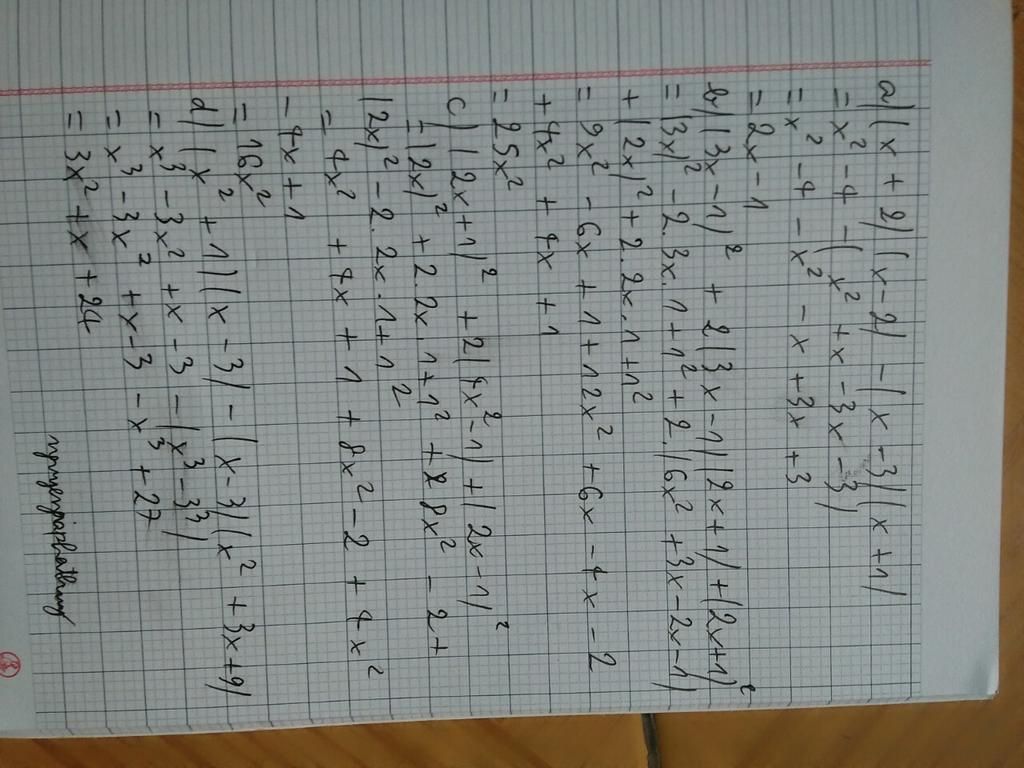 a) (x + 2) (x - 2) - (x - 3) (x + 1)
= x² - 4 - (x² + x - 3x - 3)
= x² - 4 - x² - x + 3x + 3
= 2x - 1
b) (3x - 1)² + 2(3x - 1)(2x + 1) + (2x + 1)²
= (3x)² - 2.3x.1 + 1² + 2.(6x² + 3x - 2x - 1)
+ (2x)² + 2.2x.1 + 1²
= 9x² - 6x + 1 + 12x² + 6x - 4x - 2
+ 4x² + 4x + 1
= 25x²
c) (2x + 1)² + 2(4x² - 1) + (2x - 1)²
= (2x)² + 2.2x.1 + 1² + 8x² - 2 +
(2x)² - 2.2x.1 + 1²
= 4x² + 4x + 1 + 8x² - 2 + 4x²
- 4x + 1
= 16x²
d) (x² + 1)(x - 3) - (x - 3)(x² + 3x + 9)
= x³ - 3x² + x - 3 - (x³ - 3³)
= x³ - 3x² + x - 3 - x³ + 27
= 3x² + x + 24